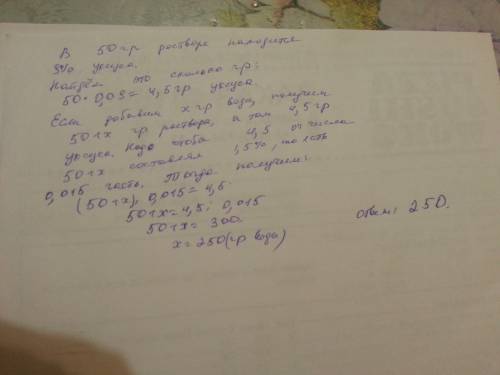 В 50 гр раствора находится
9% уксуса.
Найдём это сколько гр:
50 · 0,09 = 4,5 гр уксуса.
Если добавим x гр воды, получим
50+x гр раствора, а там 4,5 гр
уксуса. Надо чтобы 4,5 от числа
50+x составлял 1,5%, то есть
0,015 часть. Тогда получим:
(50+x) · 0,015 = 4,5
50+x = 4,5 : 0,015
50+x = 300
x = 250 (гр воды)
Ответ: 250.